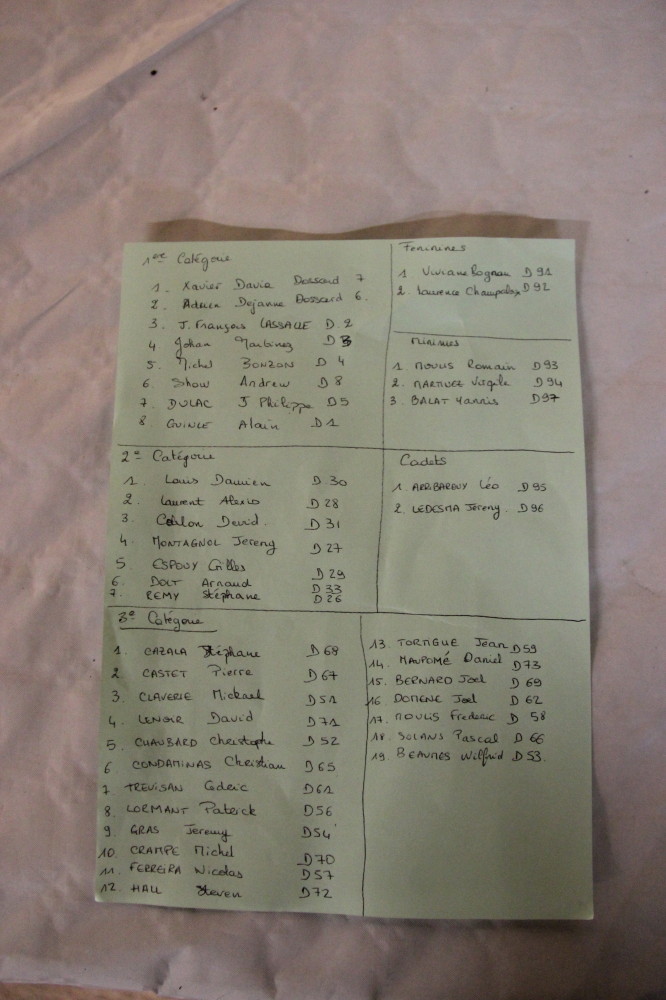 1ere Catégorie
1. Xavier Davia Dossard 7
2. Adrien Dejanne Dossard 6.
3. J. François LASSALLE D. 2
4 Johan Martinez D 3
5. Michel BONZON D 4
6. Show Andrew D 8
7. DULAC J Philippe D 5
8. GUINLE Alain D 1
Feminines
1. Viviane Rognan D 91
2. Laurence D 92
Minimes
1. MOULIS Romain D 93
2. MARTINEZ Virgile D 94
3. BALAT Yannis D 97
2e Catégorie
1. Louis Damien D. 30
2. Laurent Alexis D 28
3. David. D 31
4. MONTAGNOL Jeremy D 27
5. ESPOUY Gilles D 29
6. DOLT Arnaud D 33
7. REMY Stéphane D 26
Cadets
1. ARRIBAROUY Léo D 95
2. LEDESMA Jeremy. D 96
3e Catégorie
1. CAZALA Stéphane D 68
2. CASTET Pierre D 67
3. CLAVERIE Mickael D 51
4. LENOIR David D 71
5. CHAUBARD Christophe D 52
6. CONDAMINAS Christian D 65
7. TREVISAN Cedric D 61
8. LORMANT Paterick D 56
9. GRAS Jeremy D 54
10. CRAMPE Michel D 70
11. FERREIRA Nicolas D 57
12. HALL Steven D 72
13. TORTIGUE Jean D 59
14. MAUPOMÉ Daniel D 73
15. BERNARD Joel D 69
16. DOMENE Joel D 62
17. MOULIS Frederic D 58
18. SOLANS Pascal D 66
19. BEAUMES Wilfrid D 53.